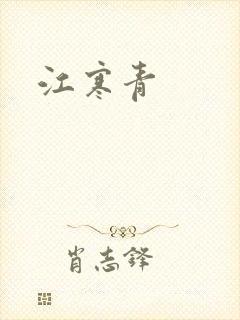 江寒青
肖志铎